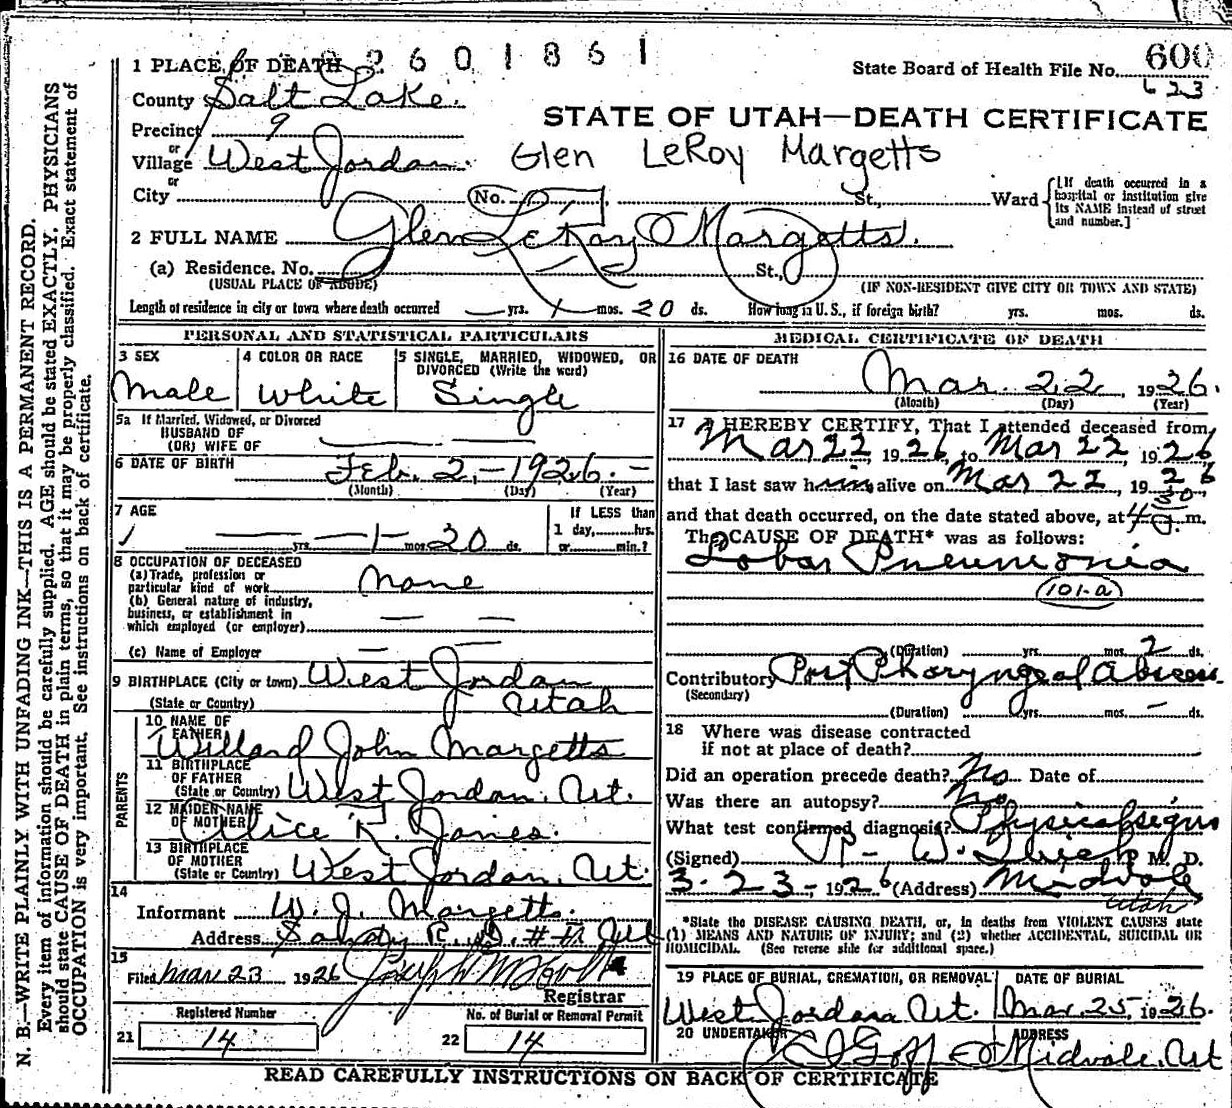 2601861
600
623
1 PLACE OF DEATH
State Board of Health File No.
County Salt Lake.
STATE OF UTAH—DEATH CERTIFICATE
Precinct 9
or
Village West Jordan.
Glen LeRoy Margetts
or
City No. St., Ward
[If death occurred in a hospital or institution give its NAME instead of street and number.]
2 FULL NAME Glen LeRoy Margetts.
(a) Residence. No. St.,
(USUAL PLACE OF ABODE) (IF NON-RESIDENT GIVE CITY OR TOWN AND STATE)
Length of residence in city or town where death occurred — yrs. 1 mos. 20 ds. How long in U. S., if foreign birth? yrs. mos. ds.
PERSONAL AND STATISTICAL PARTICULARS
3 SEX
Male
4 COLOR OR RACE
White
5 SINGLE, MARRIED, WIDOWED, OR DIVORCED (Write the word)
Single
5a If Married, Widowed, or Divorced
HUSBAND OF
(OR) WIFE OF
6 DATE OF BIRTH Feb. 2,—1926.—
(Month) (Day) (Year)
7 AGE
— yrs. 1 mos. 20 ds.
If LESS than
1 day, hrs.
or min.?
8 OCCUPATION OF DECEASED
(a) Trade, profession or
particular kind of work none
(b) General nature of industry,
business, or establishment in
which employed (or employer) — —
(c) Name of Employer — —
9 BIRTHPLACE (City or town) West Jordan
(State or Country) Utah
PARENTS
10 NAME OF
FATHER Willard John Margetts
11 BIRTHPLACE
OF FATHER
(State or Country) West Jordan, Ut.
12 MAIDEN NAME
OF MOTHER Alice R. Jones.
13 BIRTHPLACE
OF MOTHER
(State or Country) West Jordan, Ut.
14
Informant W. J. Margetts.
Address Sandy R. D. # Ut
15
Filed Mar 23 1926
Registrar
Registered Number
21 14
No. of Burial or Removal Permit
22 14
MEDICAL CERTIFICATE OF DEATH
16 DATE OF DEATH
Mar. 22, 1926.
(Month) (Day) (Year)
17 I HEREBY CERTIFY, That I attended deceased from
Mar 22, 1926, to Mar 22 1926
that I last saw him alive on Mar 22, 1926
and that death occurred, on the date stated above, at m.
The CAUSE OF DEATH* was as follows:
Lobar Pneumonia
101-a
(Duration) yrs. mos. 2 ds.
Contributory Post Pharyngeal Abscess
(Secondary)
(Duration) yrs. mos. — ds.
18 Where was disease contracted
if not at place of death?
Did an operation precede death? No Date of
Was there an autopsy? No
What test confirmed diagnosis? Physical signs
(Signed) M. D.
3-23-1926 (Address) Midvale
Utah
*State the DISEASE CAUSING DEATH, or, in deaths from VIOLENT CAUSES state
(1) MEANS AND NATURE OF INJURY; and (2) whether ACCIDENTAL, SUICIDAL OR
HOMICIDAL. (See reverse side for additional space.)
19 PLACE OF BURIAL, CREMATION, OR REMOVAL
West Jordan Ut.
DATE OF BURIAL
Mar. 25, 1926.
20 UNDERTAKER
Goff
ADDRESS
Midvale, Ut
READ CAREFULLY INSTRUCTIONS ON BACK OF CERTIFICATE
N. B.—WRITE PLAINLY WITH UNFADING INK—THIS IS A PERMANENT RECORD.
Every item of information should be carefully supplied. AGE should be stated EXACTLY. PHYSICIANS
should state CAUSE OF DEATH in plain terms, so that it may be properly classified. Exact statement of
OCCUPATION is very important. See instructions on back of certificate.